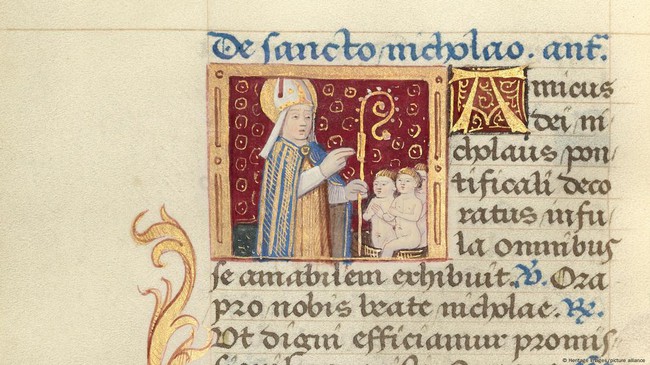 De sancto nicholao. ant.
Amicus
dei ni
cholaus pon
tificali deco
ratus infu
la omnibus
se amabilem exhibuit. V. Ora
pro nobis beate nicholae. R.
Vt digni efficiamur promis
© Heritage Images/picture alliance